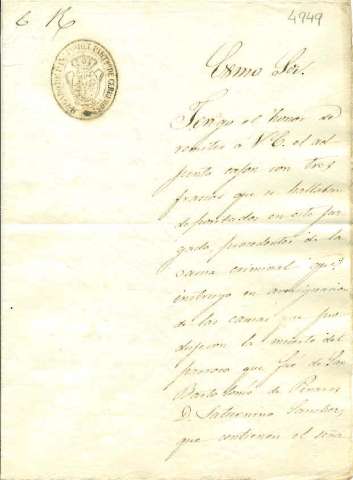 4949
Exmo Sor.
Tengo el honor de
remitir á V.E. el ad
junto cajon con tres
frascos que se hallaban
depositados en este juz
gado, procedentes de la
causa criminal que
instruyo en averiguacion
de las causas que pro
dujeron la muerte del
parroco que fué de San
Bartolomé de Pinares
D. Saturnino
que contienen el